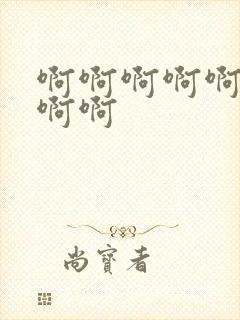 啊啊啊啊啊
啊啊
尚寳者